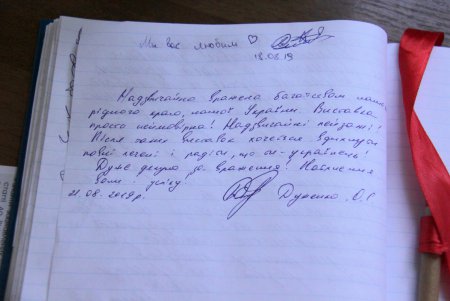 Ми вас любим ♡
18.08.19
Надзвичайно вражена багатством нашого
рідного краю, нашої України. Виставка
просто неймовірна! Надзвичайні пейзажі!
Після таких виставок хочеться
повні легені і радіти, що ти - українець!
Дуже дякую за враження! Натхнення
Вам і успіху
21.08.2019р. О.Г.